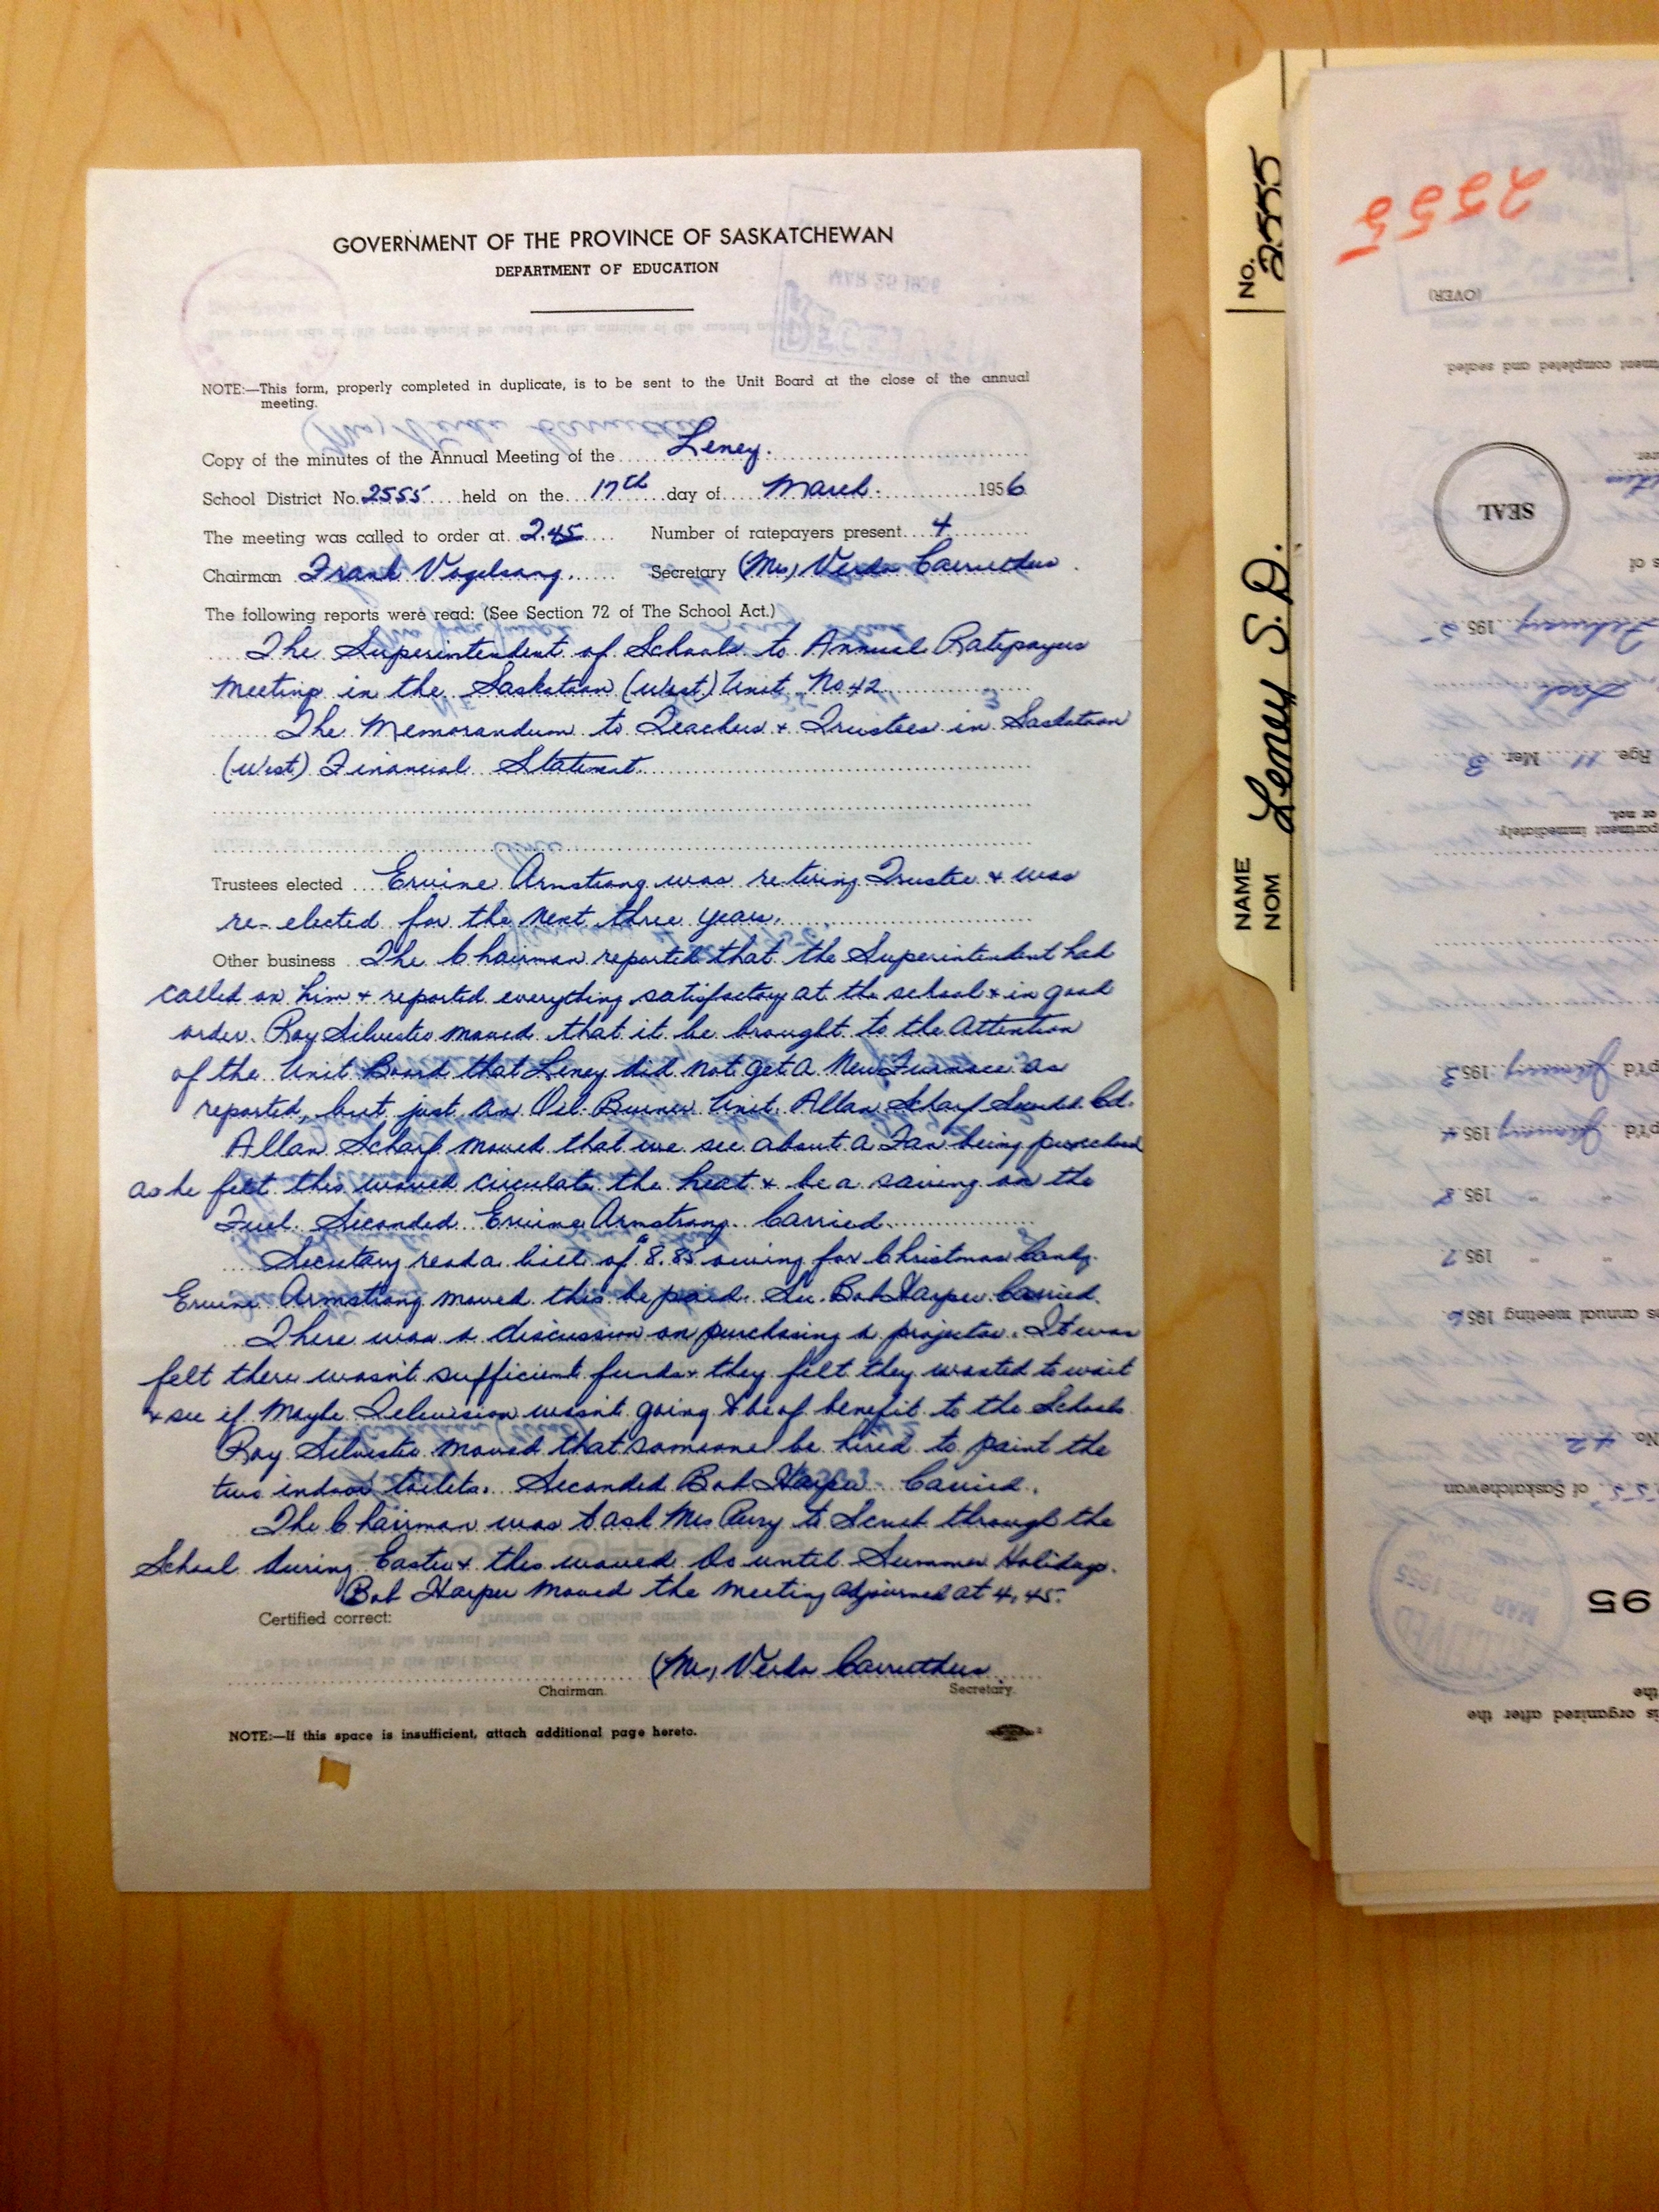 GOVERNMENT OF THE PROVINCE OF SASKATCHEWAN
DEPARTMENT OF EDUCATION
NOTE:—This form, properly completed in duplicate, is to be sent to the Unit Board at the close of the annual
meeting.
Copy of the minutes of the Annual Meeting of the Leney.
School District No. 2555 held on the 17th day of March. 1956
The meeting was called to order at 2.45 Number of ratepayers present 4
Chairman Frank Vogelsang. Secretary (Mrs) Verda Carruthers.
The following reports were read: (See Section 72 of The School Act.)
The Superintendent of Schools to Annual Ratepayers
Meeting in the Saskatoon (West) Unit No 42
The Memorandum to Teachers + Trustees in Saskatoon
(West) Financial Statement.
Trustees elected Ervine Armstrong was retiring Trustee + was
re-elected for the next three years.
Other business The Chairman reported that the Superintendent had
called on him + reported everything satisfactory at the school + in good
order. Roy Silvester moved that it be brought to the Attention
of the Unit Board that Leney did not get a New Furnace as
reported, but just an Oil-Burner Unit. Allan Scharf Seconded. Cd.
Allan Scharf moved that we see about a Fan being purchased
as he felt this would circulate the heat + be a saving on the
Fuel. Seconded Ervine Armstrong. Carried.
Secretary read a bill of $8.85 owing for Christmas Candy.
Ervine Armstrong moved this be paid. Sec. Bob Harper. Carried.
There was a discussion on purchasing a projector. It was
felt there wasn't sufficient funds + they felt they wanted to wait
+ see if Maybe Television wasn't going to be of benefit to the Schools
Roy Silvester moved that someone be hired to paint the
two indoor toilets. Seconded Bob Harper. Carried.
The Chairman was to ask Mrs Perry to Scrub through the
School during Easter + this would do until Summer Holidays.
Bob Harper moved the meeting adjourned at 4.45.
Certified correct:
(Mrs) Verda Carruthers
Chairman. Secretary.
NOTE:—If this space is insufficient, attach additional page hereto.
No. 2555
NAME
NOM
Leney S.D.
2555
(OVER)
completed and sealed
SEAL
February 1955
Age 11 Mer. 3
or not.
immediately.
January 1953
January 1954
1958
1957
annual meeting 1956
No. 42
of Saskatchewan
RECEIVED
MAR 1955
95
the
is organized after the